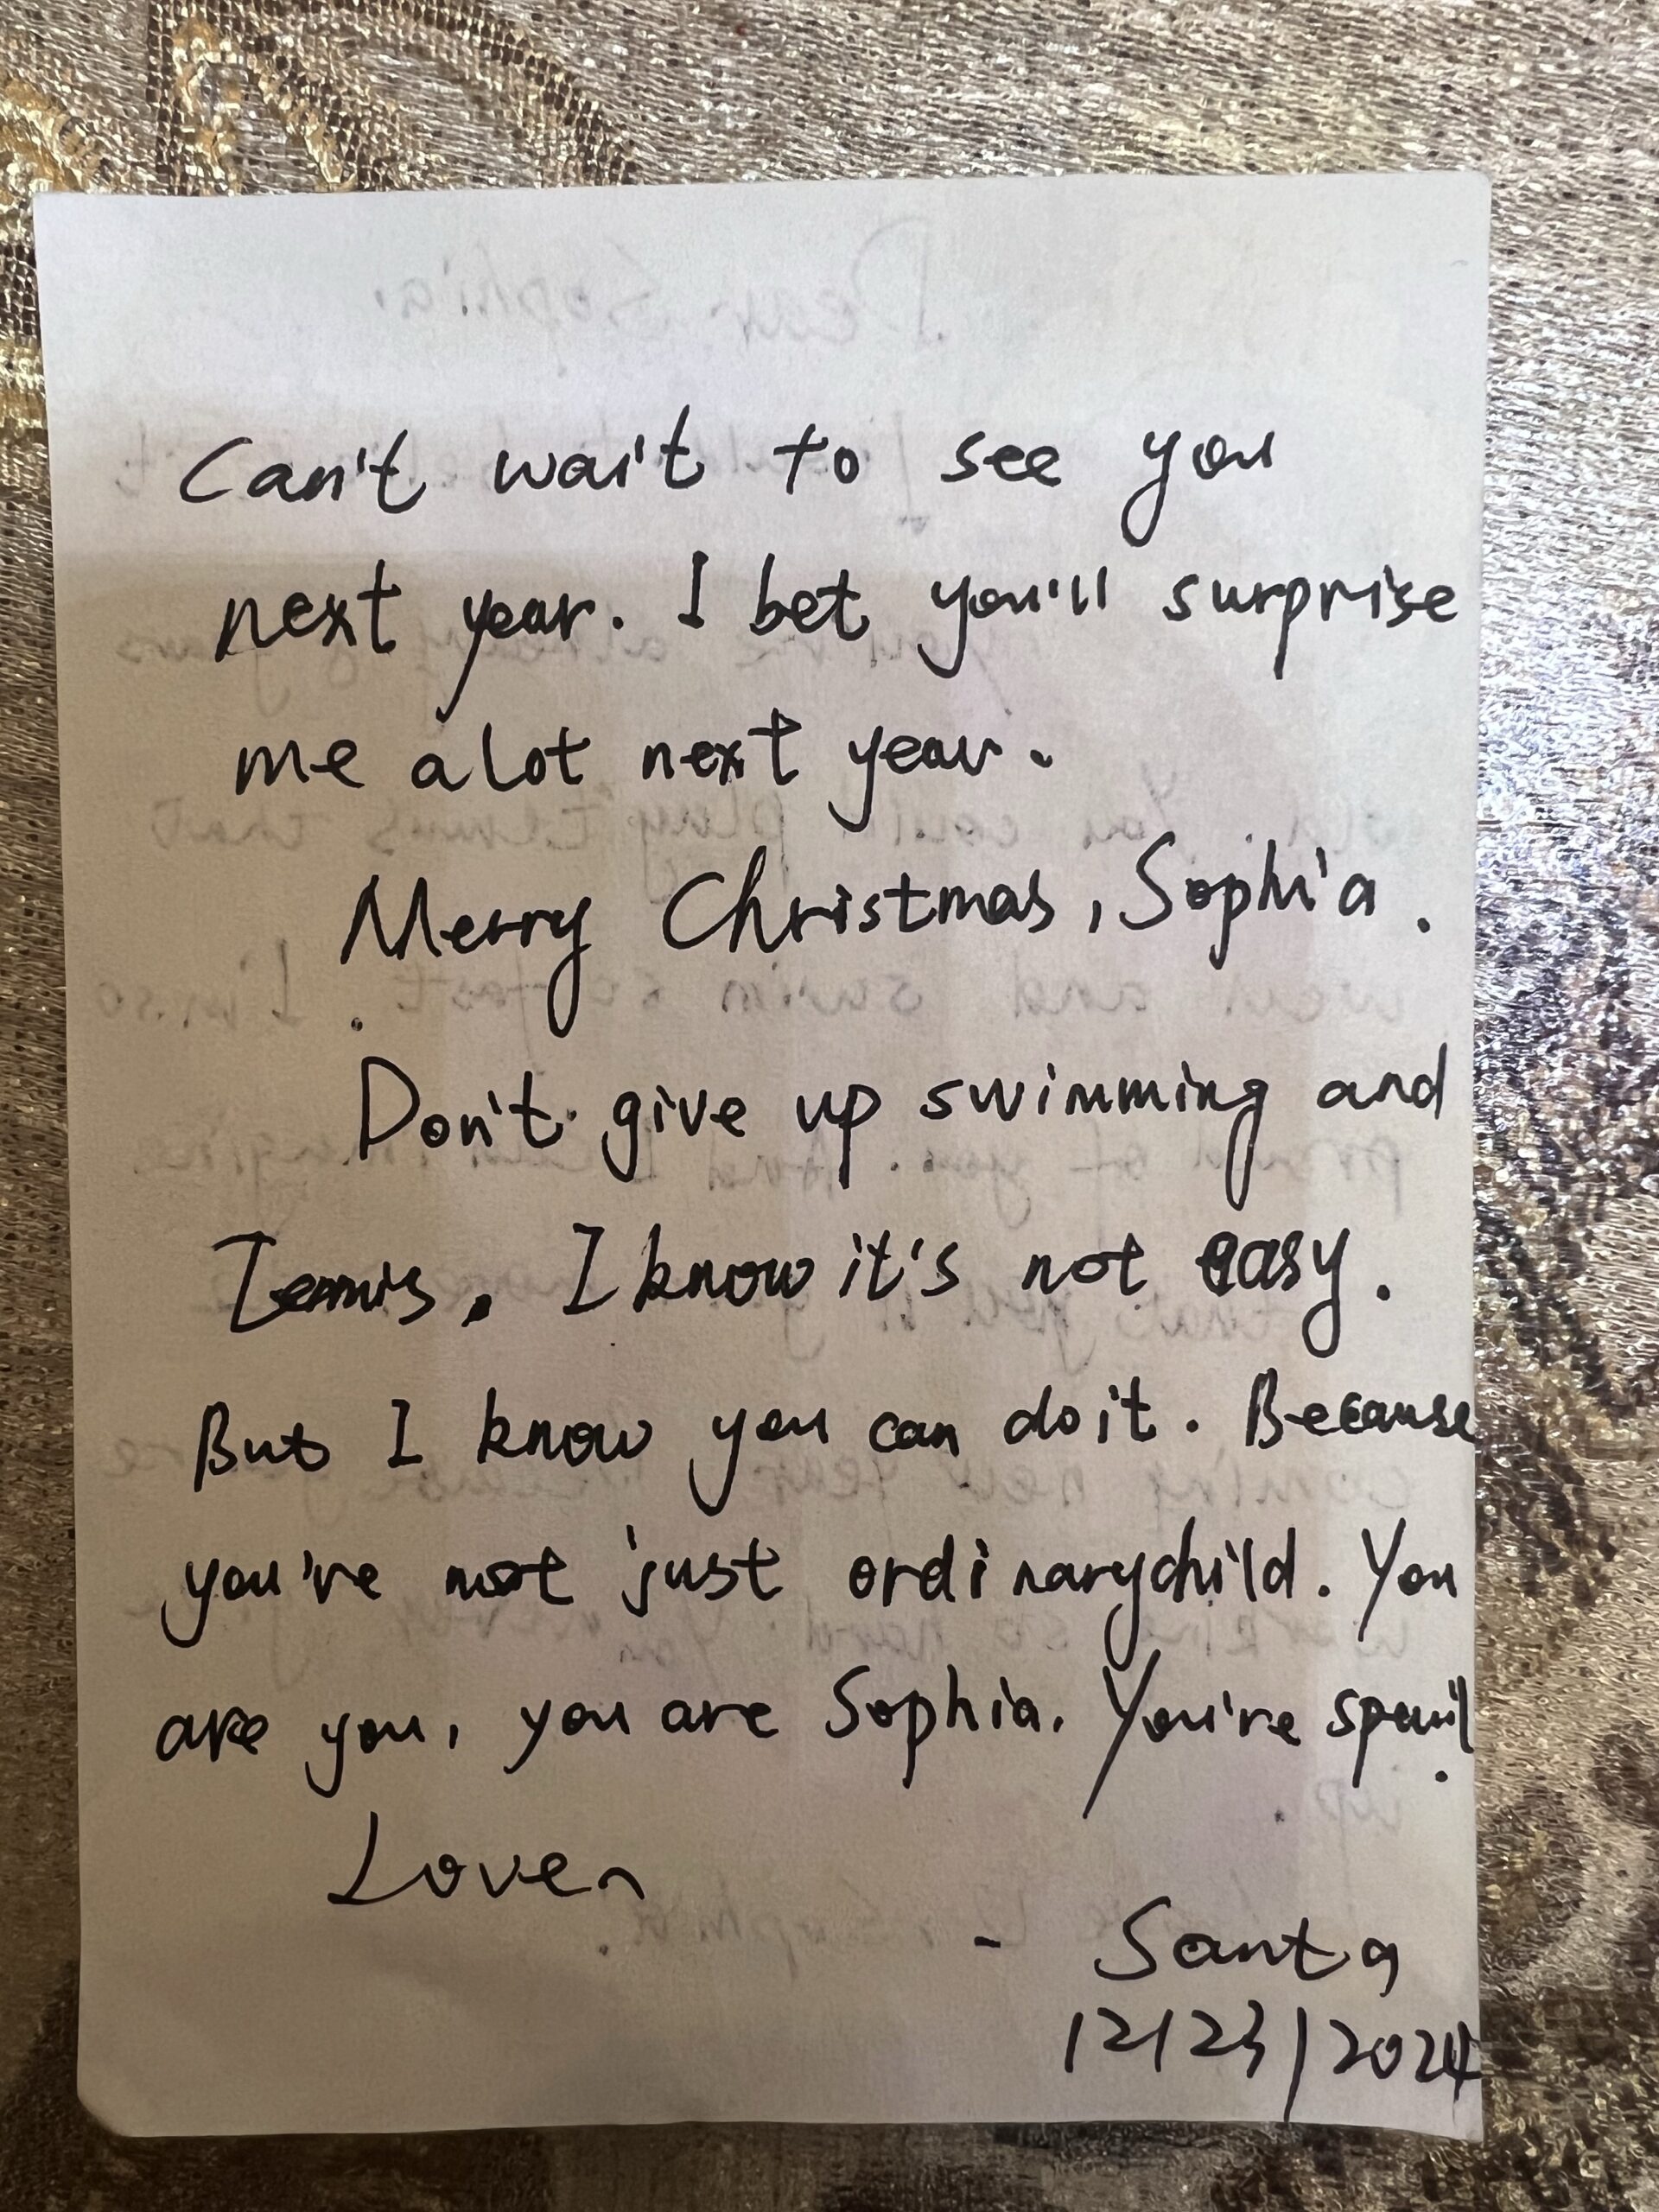 Can't wait to see you
next year. I bet you'll surprise
me a lot next year.
Merry Christmas, Sophia.
Don't give up swimming and
Tennis. I know it's not easy.
But I know you can do it. Because
you're not just ordinary child. You
are you, you are Sophia. You're
Love,
- Santa
12/23/2024